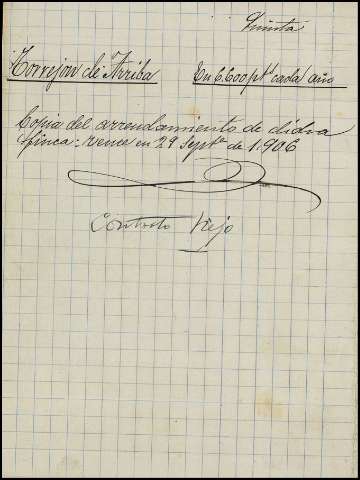 Quinta
Torrejon de Arriba En 6.600 pts cada año
Copia del arrendamiento de dicha
finca: vence en 29 Septe de 1.906
Contrato Viejo